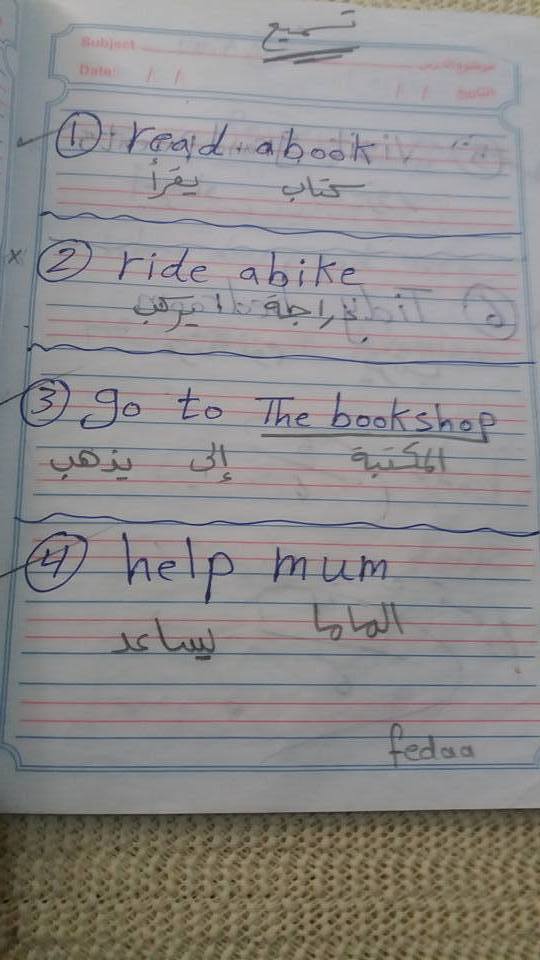 تسميع
Subject
Date: / /
/ /
① read a book
يقرأ كتاب
x ② ride abike
يركب دراجة
③ go to The bookshop
يذهب إلى المكتبة
④ help mum
يساعد الماما
fedaa